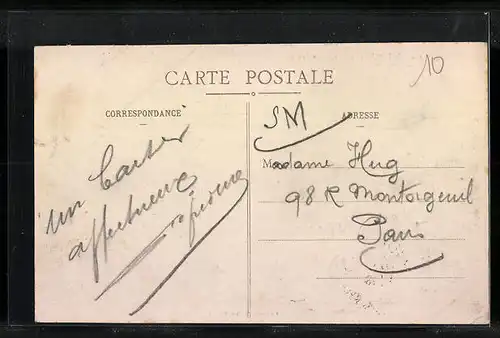 10
CARTE POSTALE
CORRESPONDANCE
ADRESSE
SM
Un baiser
affectueux
Madame Hug
98 R Montorgeuil
Paris